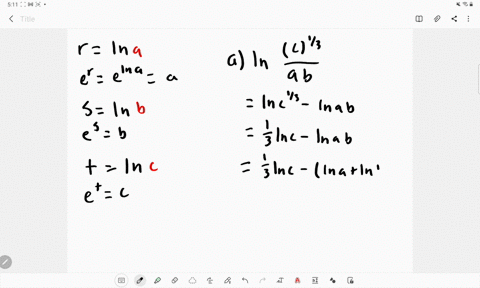 5:11
Title
r = ln a
e^r = e^{ln a} = a
s = ln b
e^s = b
t = ln c
e^t = c
a) ln (c)^{1/3} / ab
= ln c^{1/3} - ln ab
= 1/3 ln c - ln ab
= 1/3 ln c - (ln a + ln